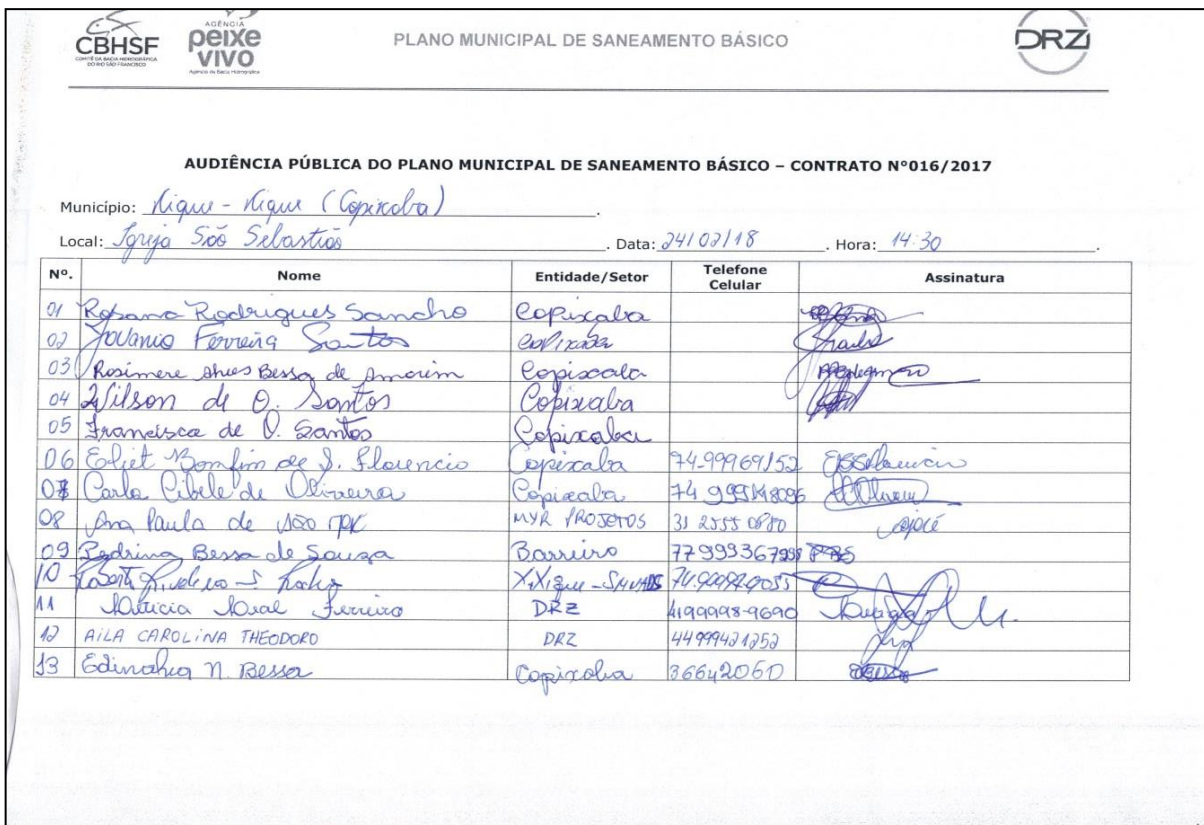 CBHSF
COMITÊ DA BACIA HIDROGRÁFICA
DO RIO SÃO FRANCISCO
AGÊNCIA
peixe
vivo
Agência de Bacia Hidrográfica
PLANO MUNICIPAL DE SANEAMENTO BÁSICO
DRZ
AUDIÊNCIA PÚBLICA DO PLANO MUNICIPAL DE SANEAMENTO BÁSICO – CONTRATO Nº016/2017
Município: Xique - Xique (Copixaba)
Local: Igreja São Sebastião. Data: 24/02/18. Hora: 14:30.
Nº. Nome Entidade/Setor Telefone Celular Assinatura
01 Rosana Rodrigues Sancho Copixaba
02 Jovanio Ferreira Santos Copixaba
03 Rosimere Alves Bessa de Amorim Copixaba
04 Wilson de O. Santos Copixaba
05 Francisca de O. Santos Copixaba
06 Eliet Bomfim de S. Florencio Copixaba 74-99969152
07 Carla Cibele de Oliveira Copixaba 74
08 Ana Paula de São MYR PROJETOS 31 2555 0880
09 Pedrina Bessa de Souza Barreiro PBS
10 XiXique
11 Ferreira DRZ 4199998-9690
12 AILA CAROLINA THEODORO DRZ 44999421252
13 N. Bessa Copixaba 36642060